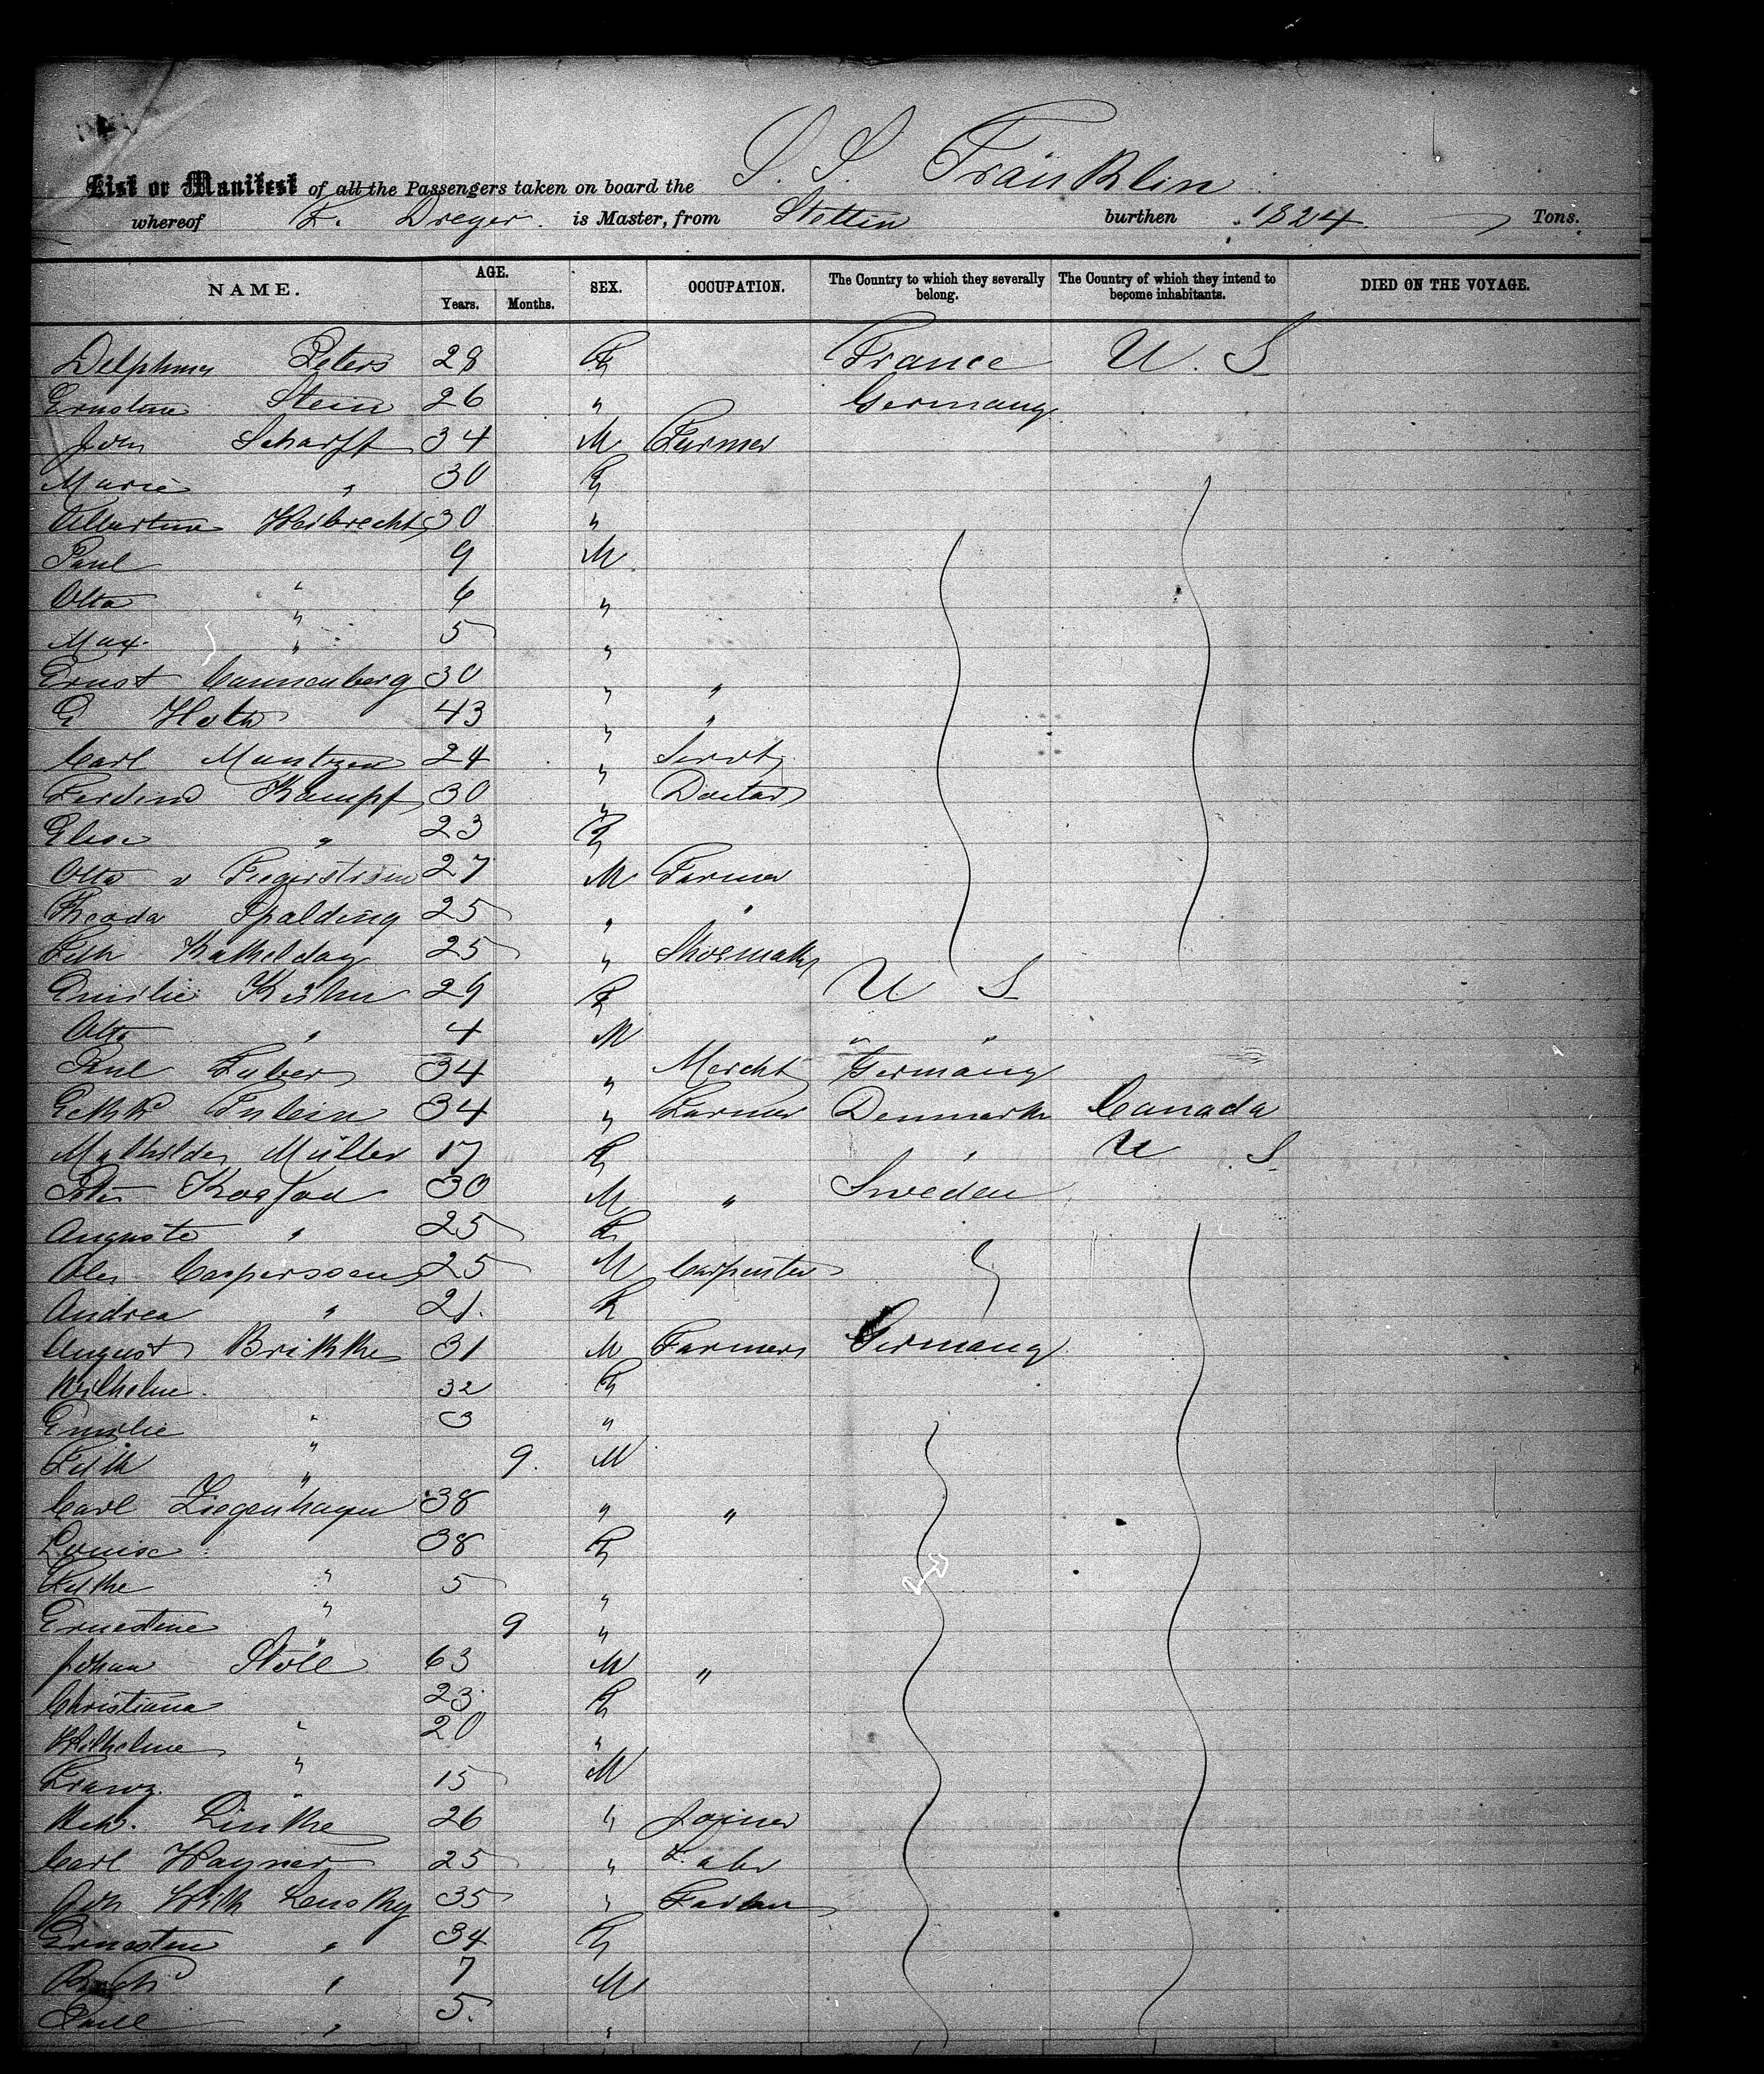 List or Manifest of all the Passengers taken on board the S. S. Franklin
whereof F. Dreyer. is Master, from Stettin burthen 1824 Tons.
NAME. AGE. Years. Months. SEX. OCCUPATION. The Country to which they severally belong. The Country of which they intend to become inhabitants. DIED ON THE VOYAGE.
Peters 28 F France U. S
Ernstine Stein 26 " Germany
Joh Scharff 34 M Farmer
Marie " 30 F
Albertine Weibrecht 30 "
Paul " 9 M
Otto " 6 "
Max. " 5 "
Ernst Cannenberg 30 " "
G 43 " "
Carl 24 " Servt
Ferdind Kampf 30 " Doctor
Elise " 23 F
Otto v 27 M Farmer
Spalding 25 " "
25 " Shoemakr
Emilie Kühn 29 F U S
Otto " 4 M " "
Paul 34 " Mercht Germany
34 " Farmer Denmark Canada
Mathilde Müller 17 F " U S
30 M " Sweden
Auguste " 25 F
Caspersson 25 M Carpenter
Andrea " 21. F
August Brikke 31 M Farmer Germany
Wilhelm. " 32 F
Emilie " 3 "
" 9. M
Carl Ziegenhagen 38 " "
Louise " 38 F
" 5 "
Ernestine " 9 "
Johan Stoll 63 M "
Christiana " 23 F
Wilhelme " 20 "
Franz. " 15 M
Linke 26 " Joiner
Carl Wagner 25 " Labr
Joh Wilh Lensky 35 " Farmer
Ernestin " 34 F
" 7 M
Paul " 5. "